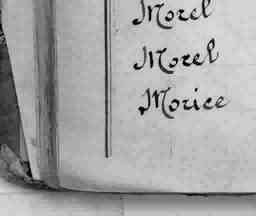 Morel
Morel
Morice